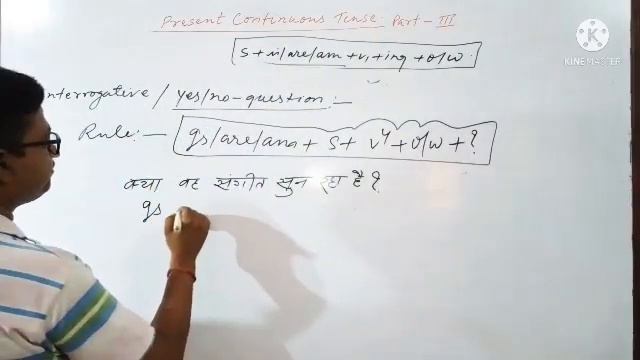 Present Continuous Tense: Part - III
S + is/are/am + v₁ + ing + o/w
KINEMASTER
Interrogative / Yes/no-question :-
Rule:- Is/are/am + S + v⁴ + o/w + ?
क्या वह संगीत सुन रहा है ?
Is